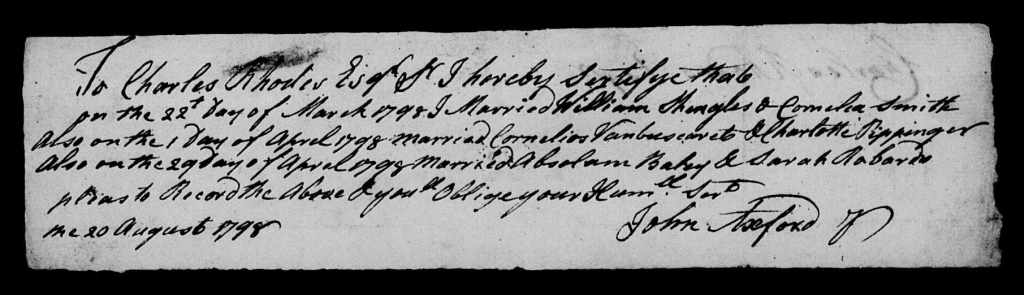 To Charles Rhodes Esqr Sr I hereby Sertifye that
on the 22t Day of March 1798 I Married William Shingles & Cornelia Smith
also on the 1 Day of April 1798 married Cornelios Vanbuscaret & Charlotte Pippinger
also on the 29 day of April 1798 Married Absolam Baky & Sarah Robards
pleas to Record the Above & youll Oblige your Humll Sert
the 20 August 1798
John Axford